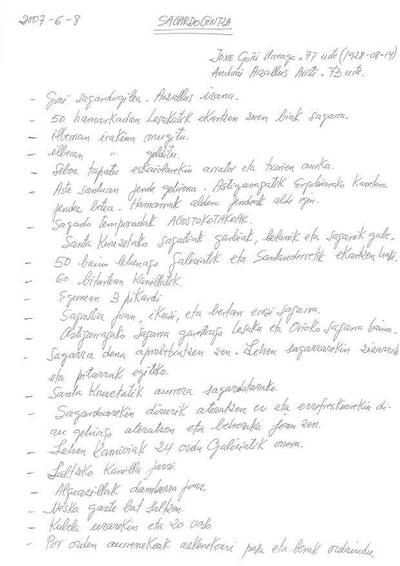 2007-6-8
SAGARDOGINTZA
Joxe Goñi Urreaga. 77 urte (1928-08-14)
Andoni Arzallus Aristi. 73 urte.
- Goñi sagardogilea. Arzallus izana.
- 50 hamarkadan Lesakatik ekartzen zuen biak sagarra.
- Ilberrian irakina mugitu.
- Ilberan " gelditu.
- Seboz tapatu eskailerarekin arratoi eta txorien aurka.
- Aste santuan jende gehiena. Astigarragatik Ergobiarako karretera
jendez betea. Hamarrak aldera jendeak alde egin.
- Sagardo tenporadak AGOSTOKOTAKOAK.
Santa Kruzetako sagastiak garbiak, belarrik eta sasirik gabe.
- 50 baino lehenago Galiziatik eta Santanderretik ekartzen
- 60 bitartean Kamillatik
- Egunean 3 pikardi
- Sagastia joan, ikusi, eta bertan erosi sagarra.
Astigarragako sagarra garestiago Lesaka eta Orioko sagarra baino.
- Sagarra dena aprobetxatzen zen. Lehen sagarrarekin zizarrak
eta pitarrak egiteko.
- Santa Kruzetatik aurrera sagardotarako.
- Sagardoarekin dirurik ateratzen ez eta errefreskoarekin di-
ru gehiago ateratzen eta beherako joan zen.
- Lehen kamioiak 24 ordu Galiziatik onera.
- Saltzeko Kanilla jarri.
- Alguazillak danborra joaz.
- Neska gazte bat saltzen.
- Kubela urarekin eta 20 vaso
- Por orden aurrenekoak azkenekoari pasa eta berak ordaindu